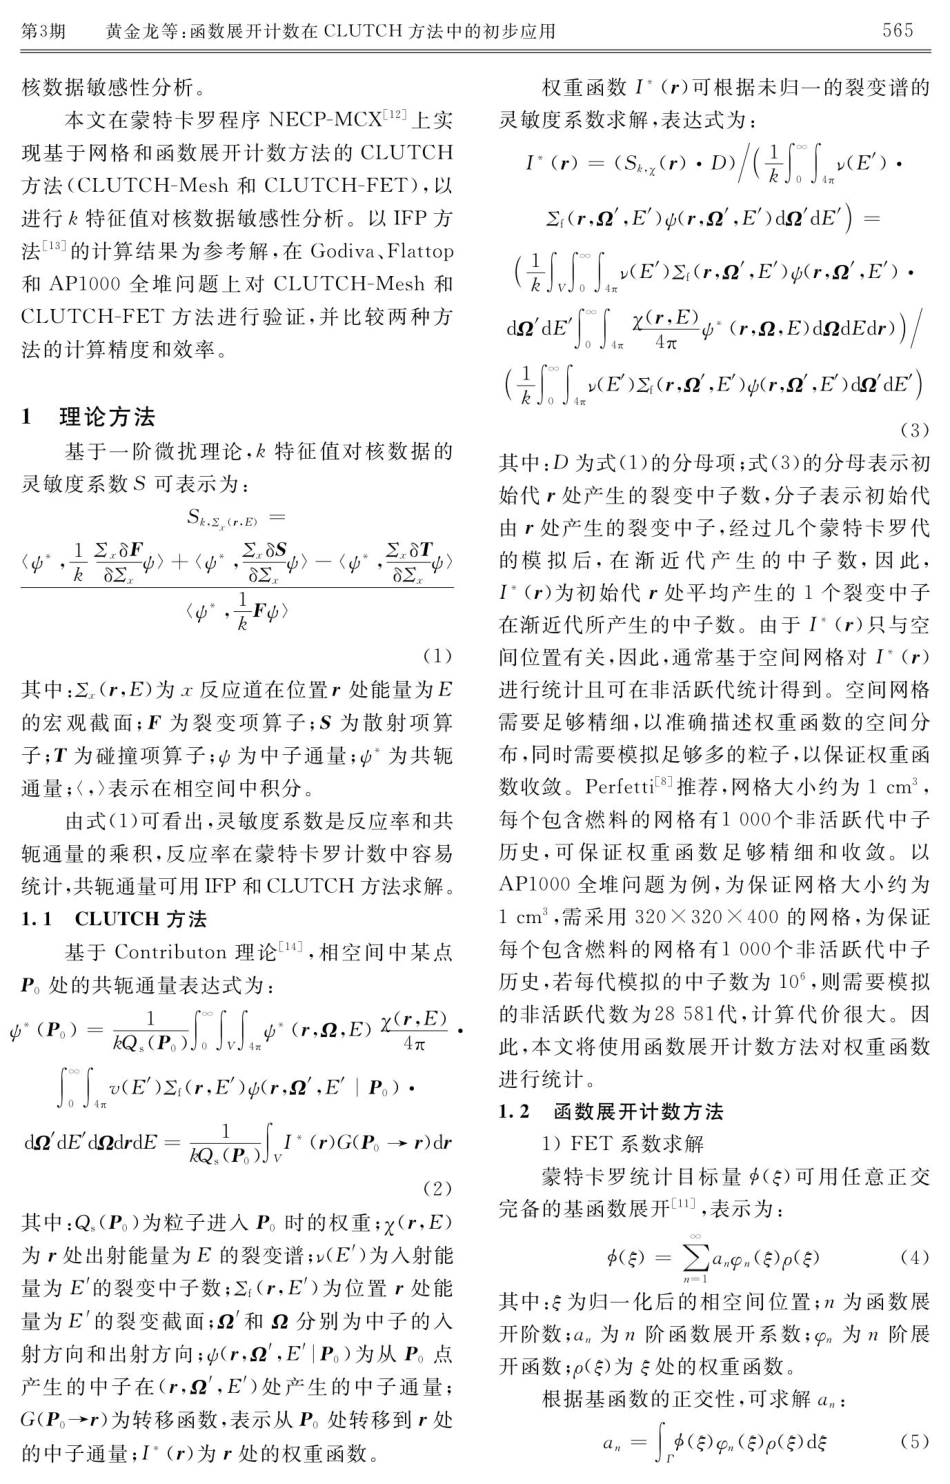 第3期 黄金龙等:函数展开计数在 CLUTCH 方法中的初步应用 565
核数据敏感性分析。
本文在蒙特卡罗程序 NECP-MCX[12]上实
现基于网格和函数展开计数方法的 CLUTCH
方法(CLUTCH-Mesh 和 CLUTCH-FET),以
进行 k 特征值对核数据敏感性分析。以 IFP 方
法[13]的计算结果为参考解,在 Godiva、Flattop
和 AP1000 全堆问题上对 CLUTCH-Mesh 和
CLUTCH-FET 方法进行验证,并比较两种方
法的计算精度和效率。
1 理论方法
基于一阶微扰理论,k 特征值对核数据的
灵敏度系数 S 可表示为:
S_{k,Σ_x(r,E)} =
(⟨ψ*, 1/k Σ_xδF/δΣ_x ψ⟩ + ⟨ψ*, Σ_xδS/δΣ_x ψ⟩ − ⟨ψ*, Σ_xδT/δΣ_x ψ⟩)
/ ⟨ψ*, 1/k Fψ⟩
(1)
其中:Σ_x(r,E)为 x 反应道在位置 r 处能量为 E
的宏观截面;F 为裂变项算子;S 为散射项算
子;T 为碰撞项算子;ψ 为中子通量;ψ* 为共轭
通量;⟨,⟩表示在相空间中积分。
由式(1)可看出,灵敏度系数是反应率和共
轭通量的乘积,反应率在蒙特卡罗计数中容易
统计,共轭通量可用 IFP 和 CLUTCH 方法求解。
1.1 CLUTCH 方法
基于 Contributon 理论[14],相空间中某点
P₀ 处的共轭通量表达式为:
ψ*(P₀) = 1/(kQ_s(P₀)) ∫_0^∞ ∫_V ∫_{4π} ψ*(r,Ω,E) χ(r,E)/4π •
∫_0^∞ ∫_{4π} υ(E′)Σ_f(r,E′)ψ(r,Ω′,E′ | P₀) •
dΩ′dE′dΩdrdE = 1/(kQ_s(P₀)) ∫_V I*(r)G(P₀ → r)dr
(2)
其中:Q_s(P₀)为粒子进入 P₀ 时的权重;χ(r,E)
为 r 处出射能量为 E 的裂变谱;ν(E′)为入射能
量为 E′的裂变中子数;Σ_f(r,E′)为位置 r 处能
量为 E′的裂变截面;Ω′和 Ω 分别为中子的入
射方向和出射方向;ψ(r,Ω′,E′|P₀)为从 P₀ 点
产生的中子在(r,Ω′,E′)处产生的中子通量;
G(P₀→r)为转移函数,表示从 P₀ 处转移到 r 处
的中子通量;I*(r)为 r 处的权重函数。
权重函数 I*(r)可根据未归一的裂变谱的
灵敏度系数求解,表达式为:
I*(r) = (S_{k,χ}(r) • D)/(1/k ∫_0^∞ ∫_{4π} ν(E′) •
Σ_f(r,Ω′,E′)ψ(r,Ω′,E′)dΩ′dE′) =
(1/k ∫_V ∫_0^∞ ∫_{4π} ν(E′)Σ_f(r,Ω′,E′)ψ(r,Ω′,E′) •
dΩ′dE′ ∫_0^∞ ∫_{4π} χ(r,E)/4π ψ*(r,Ω,E)dΩdEdr))/
(1/k ∫_0^∞ ∫_{4π} ν(E′)Σ_f(r,Ω′,E′)ψ(r,Ω′,E′)dΩ′dE′)
(3)
其中:D 为式(1)的分母项;式(3)的分母表示初
始代 r 处产生的裂变中子数,分子表示初始代
由 r 处产生的裂变中子,经过几个蒙特卡罗代
的模拟后,在渐近代产生的中子数,因此,
I*(r)为初始代 r 处平均产生的 1 个裂变中子
在渐近代所产生的中子数。由于 I*(r)只与空
间位置有关,因此,通常基于空间网格对 I*(r)
进行统计且可在非活跃代统计得到。空间网格
需要足够精细,以准确描述权重函数的空间分
布,同时需要模拟足够多的粒子,以保证权重函
数收敛。Perfetti[8]推荐,网格大小约为 1 cm³,
每个包含燃料的网格有1 000个非活跃代中子
历史,可保证权重函数足够精细和收敛。以
AP1000 全堆问题为例,为保证网格大小约为
1 cm³,需采用 320×320×400 的网格,为保证
每个包含燃料的网格有1 000个非活跃代中子
历史,若每代模拟的中子数为 10⁶,则需要模拟
的非活跃代数为28 581代,计算代价很大。因
此,本文将使用函数展开计数方法对权重函数
进行统计。
1.2 函数展开计数方法
1) FET 系数求解
蒙特卡罗统计目标量 ϕ(ξ)可用任意正交
完备的基函数展开[11],表示为:
ϕ(ξ) = ∑_{n=1}^∞ a_nφ_n(ξ)ρ(ξ) (4)
其中:ξ 为归一化后的相空间位置;n 为函数展
开阶数;a_n 为 n 阶函数展开系数;φ_n 为 n 阶展
开函数;ρ(ξ)为 ξ 处的权重函数。
根据基函数的正交性,可求解 a_n:
a_n = ∫_Γ ϕ(ξ)φ_n(ξ)ρ(ξ)dξ (5)